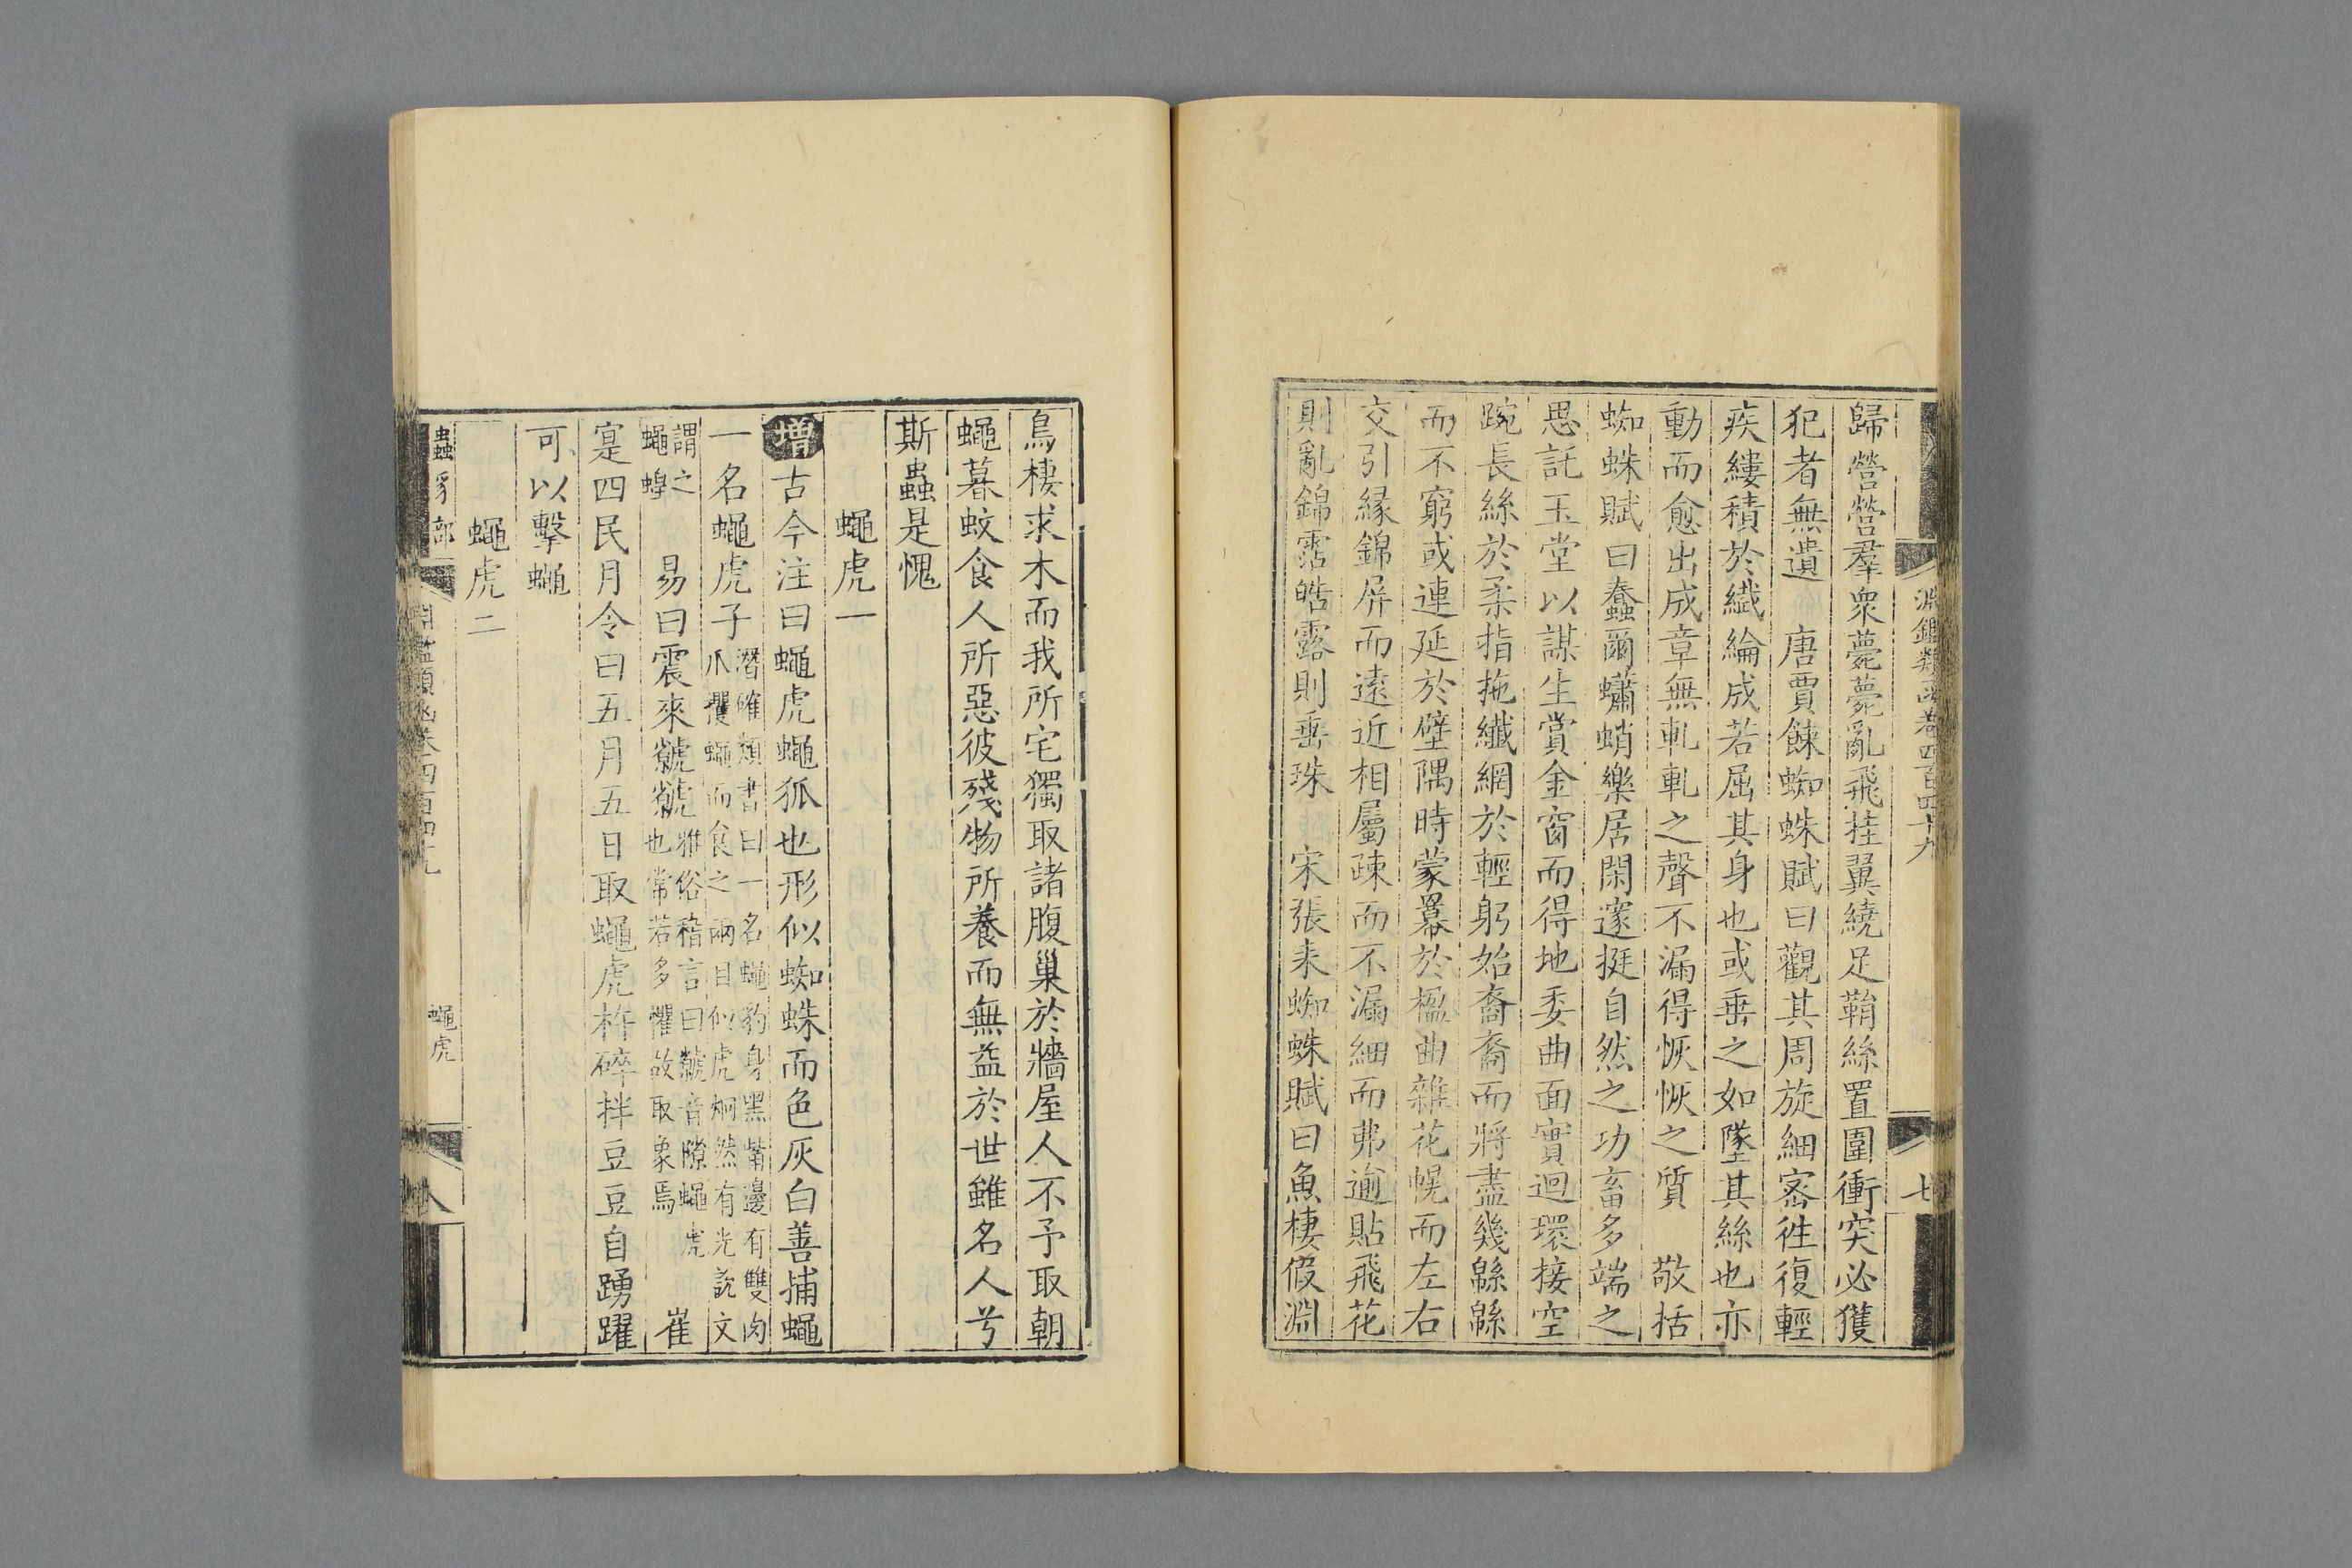 淵鑑類函卷四百四十九
七
歸營營羣衆薨薨亂飛挂翼繞足鞘絲置圍衝突必獲
犯者無遺　唐賈餗蜘蛛賦曰觀其周旋細密徃復輕
疾縷積於纎綸成若屈其身也或垂之如墜其絲也亦
動而愈出成章無軋軋之聲不漏得恢恢之質　敬括
蜘蛛賦曰蠢爾蠨蛸樂居閑邃挺自然之功畜多端之
思託玉堂以謀生賞金窗而得地委曲面實迴環接空
踠長絲於柔指拖纖網於輕躬始裔裔而將盡幾緜緜
而不窮或連延於壁隅時蒙羃於楹曲雜花幌而左右
交引緣錦屏而遠近相屬疎而不漏細而弗逾貼飛花
則亂錦霑皓露則垂珠　宋張耒蜘蛛賦曰魚棲假淵
鳥棲求木而我所宅獨取諸腹巢於牆屋人不予取朝
蠅暮蚊食人所惡彼殘物所養而無益於世雖名人兮
斯蟲是愧
蠅虎一
增古今注曰蠅虎蠅狐也形似蜘蛛而色灰白善捕蠅
一名蠅虎子潛確類書曰一名蠅豹身黑嘴邊有雙肉爪攫蠅而食之兩目似虎炯然有光說文
謂之蠅蝗　易曰震來虩虩雅俗稽言曰虩音隙蠅虎也常若多懼故取象焉　崔
寔四民月令曰五月五日取蠅虎杵碎拌豆豆自踴躍
可以擊蠅
蠅虎二
蟲豸部
淵鑑類函卷四百四十九
蠅虎
八